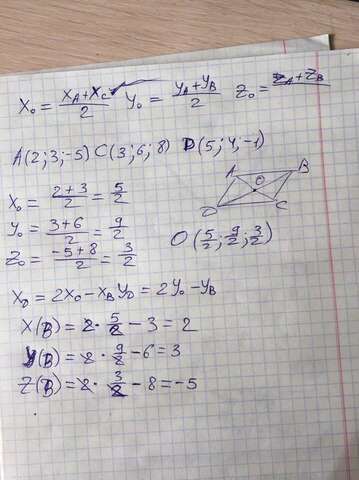 X₀ = (x_A + x_C)/2  y₀ = (y_A + y_B)/2  z₀ = (z_A + z_B)
A(2;3;-5) C(3;6;8) D(5;4;-1)
X₀ = (2+3)/2 = 5/2
A B
O
Y₀ = (3+6)/2 = 9/2
D C
Z₀ = (-5+8)/2 = 3/2
O(5/2; 9/2; 3/2)
X_D = 2X₀ - X_B y_D = 2y₀ - y_B
X(B) = 2 · 5/2 - 3 = 2
y(B) = 2 · 9/2 - 6 = 3
Z(B) = 2 · 3/2 - 8 = -5